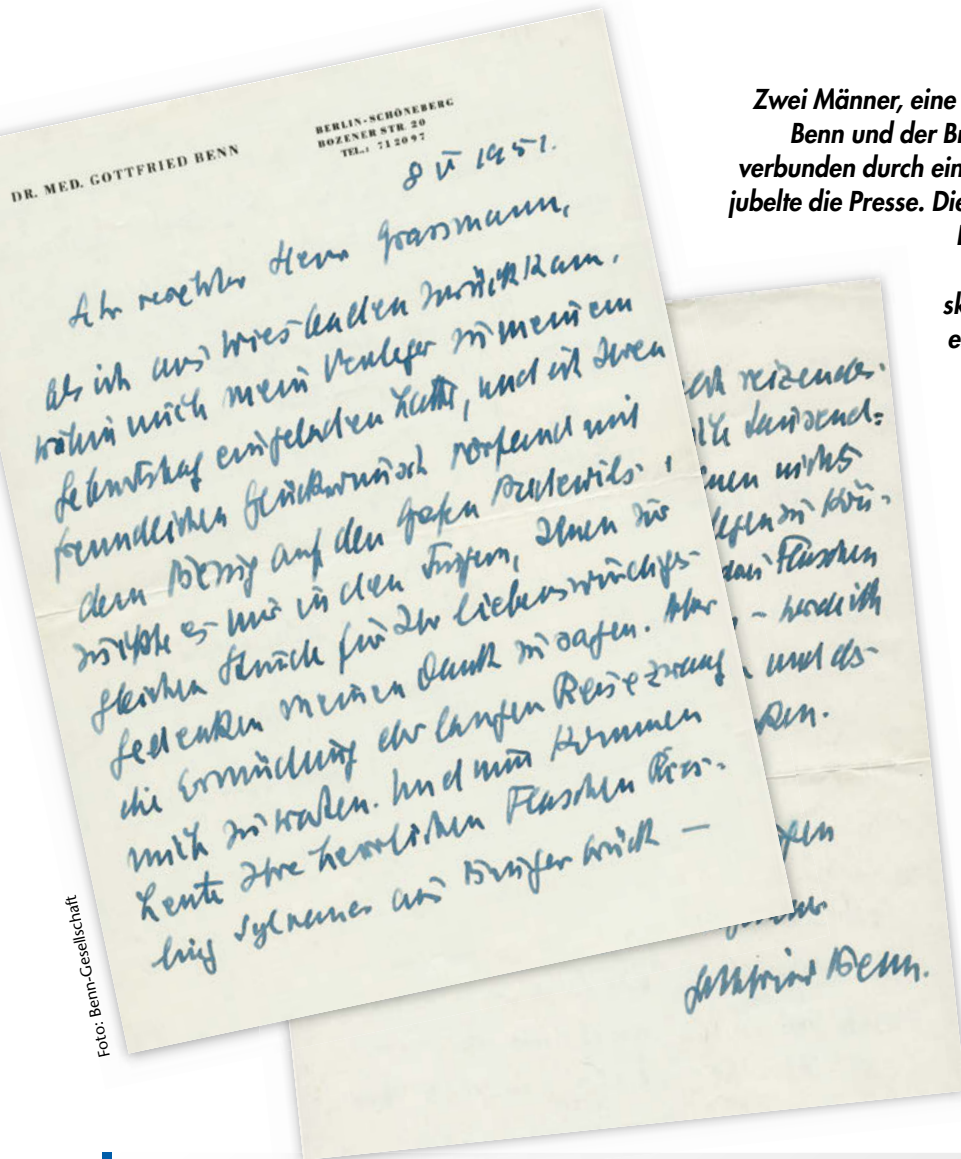 Zwei Männer, eine
Benn und der Br
verbunden durch ein
jubelte die Presse. Die
sk
e
DR. MED. GOTTFRIED BENN
BERLIN-SCHÖNEBERG
BOZENER STR. 20
TEL.: 71 20 97
8 VI 1951.
Sehr verehrter Herr Grassmann,
als ich aus Wiesbaden zurückkam,
wohin mich mein Verleger zu meinem
Geburtstag eingeladen hatte, und ich Ihren
freundlichen Glückwunsch vorfand mit
dem Bezug auf den Grafen Podewils,
zückte es mir in den Fingern, Ihnen zur
gleichen Stunde für Ihr liebenswürdiges
Gedenken meinen Dank zu sagen. Aber
die Ermüdung der langen Reise zwang
mich zu warten. Und nun kommen
heute Ihre herrlichen Flaschen Ries-
ling Sylvaner aus Bingerbrück —
reizendes.
tausend=
nichts
zu kön-
Flaschen
– werde ich
und es
ken.
Gottfried Benn.
Foto: Benn-Gesellschaft